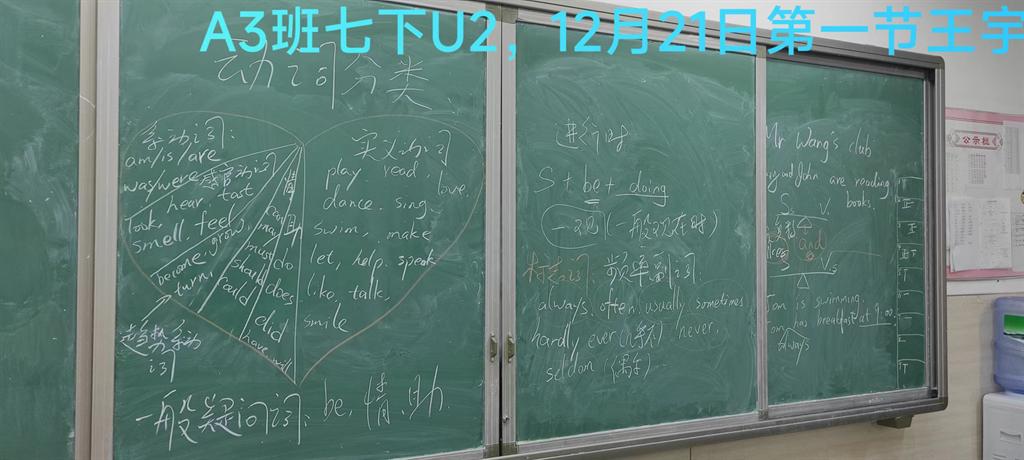 A3班七下U2，12月21日第一节王宇
动词分类
系动词:
am/is/are
was/were 感官动词
hear, tast
look,
smell. feel
become. grow,
turn,
趋势系动
词
情
can
may
must
should
could
助
do
does
did
have will
实义动词
play. read.
love.
dance. sing.
swim, make
let, help. speak
like, talk,
smile
一般疑问词: be, 情, 助.
进行时
S + be + doing
一般现在时
频率副词:
always. often. usually sometimes
hardly ever
never,
seldom
Mr Wang's club
and John are reading
books.
S V.
and
S Vs
Tom is swimming.
Tom has breakfast at 9:00.
always
公示栏